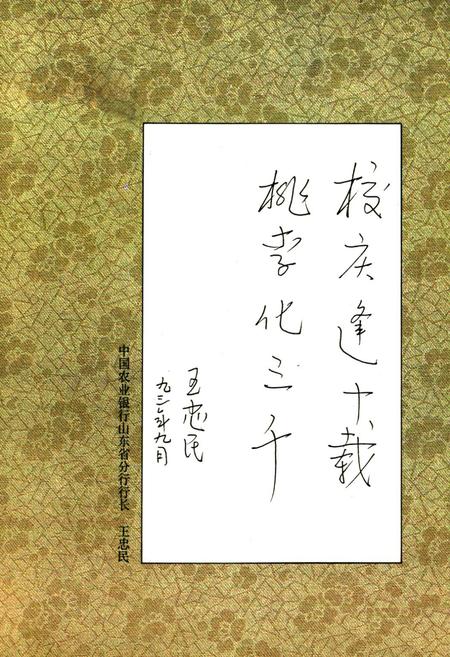 校庆逢十载
桃李化三千
王忠民
九三年九月
中国农业银行山东省分行行长 王忠民